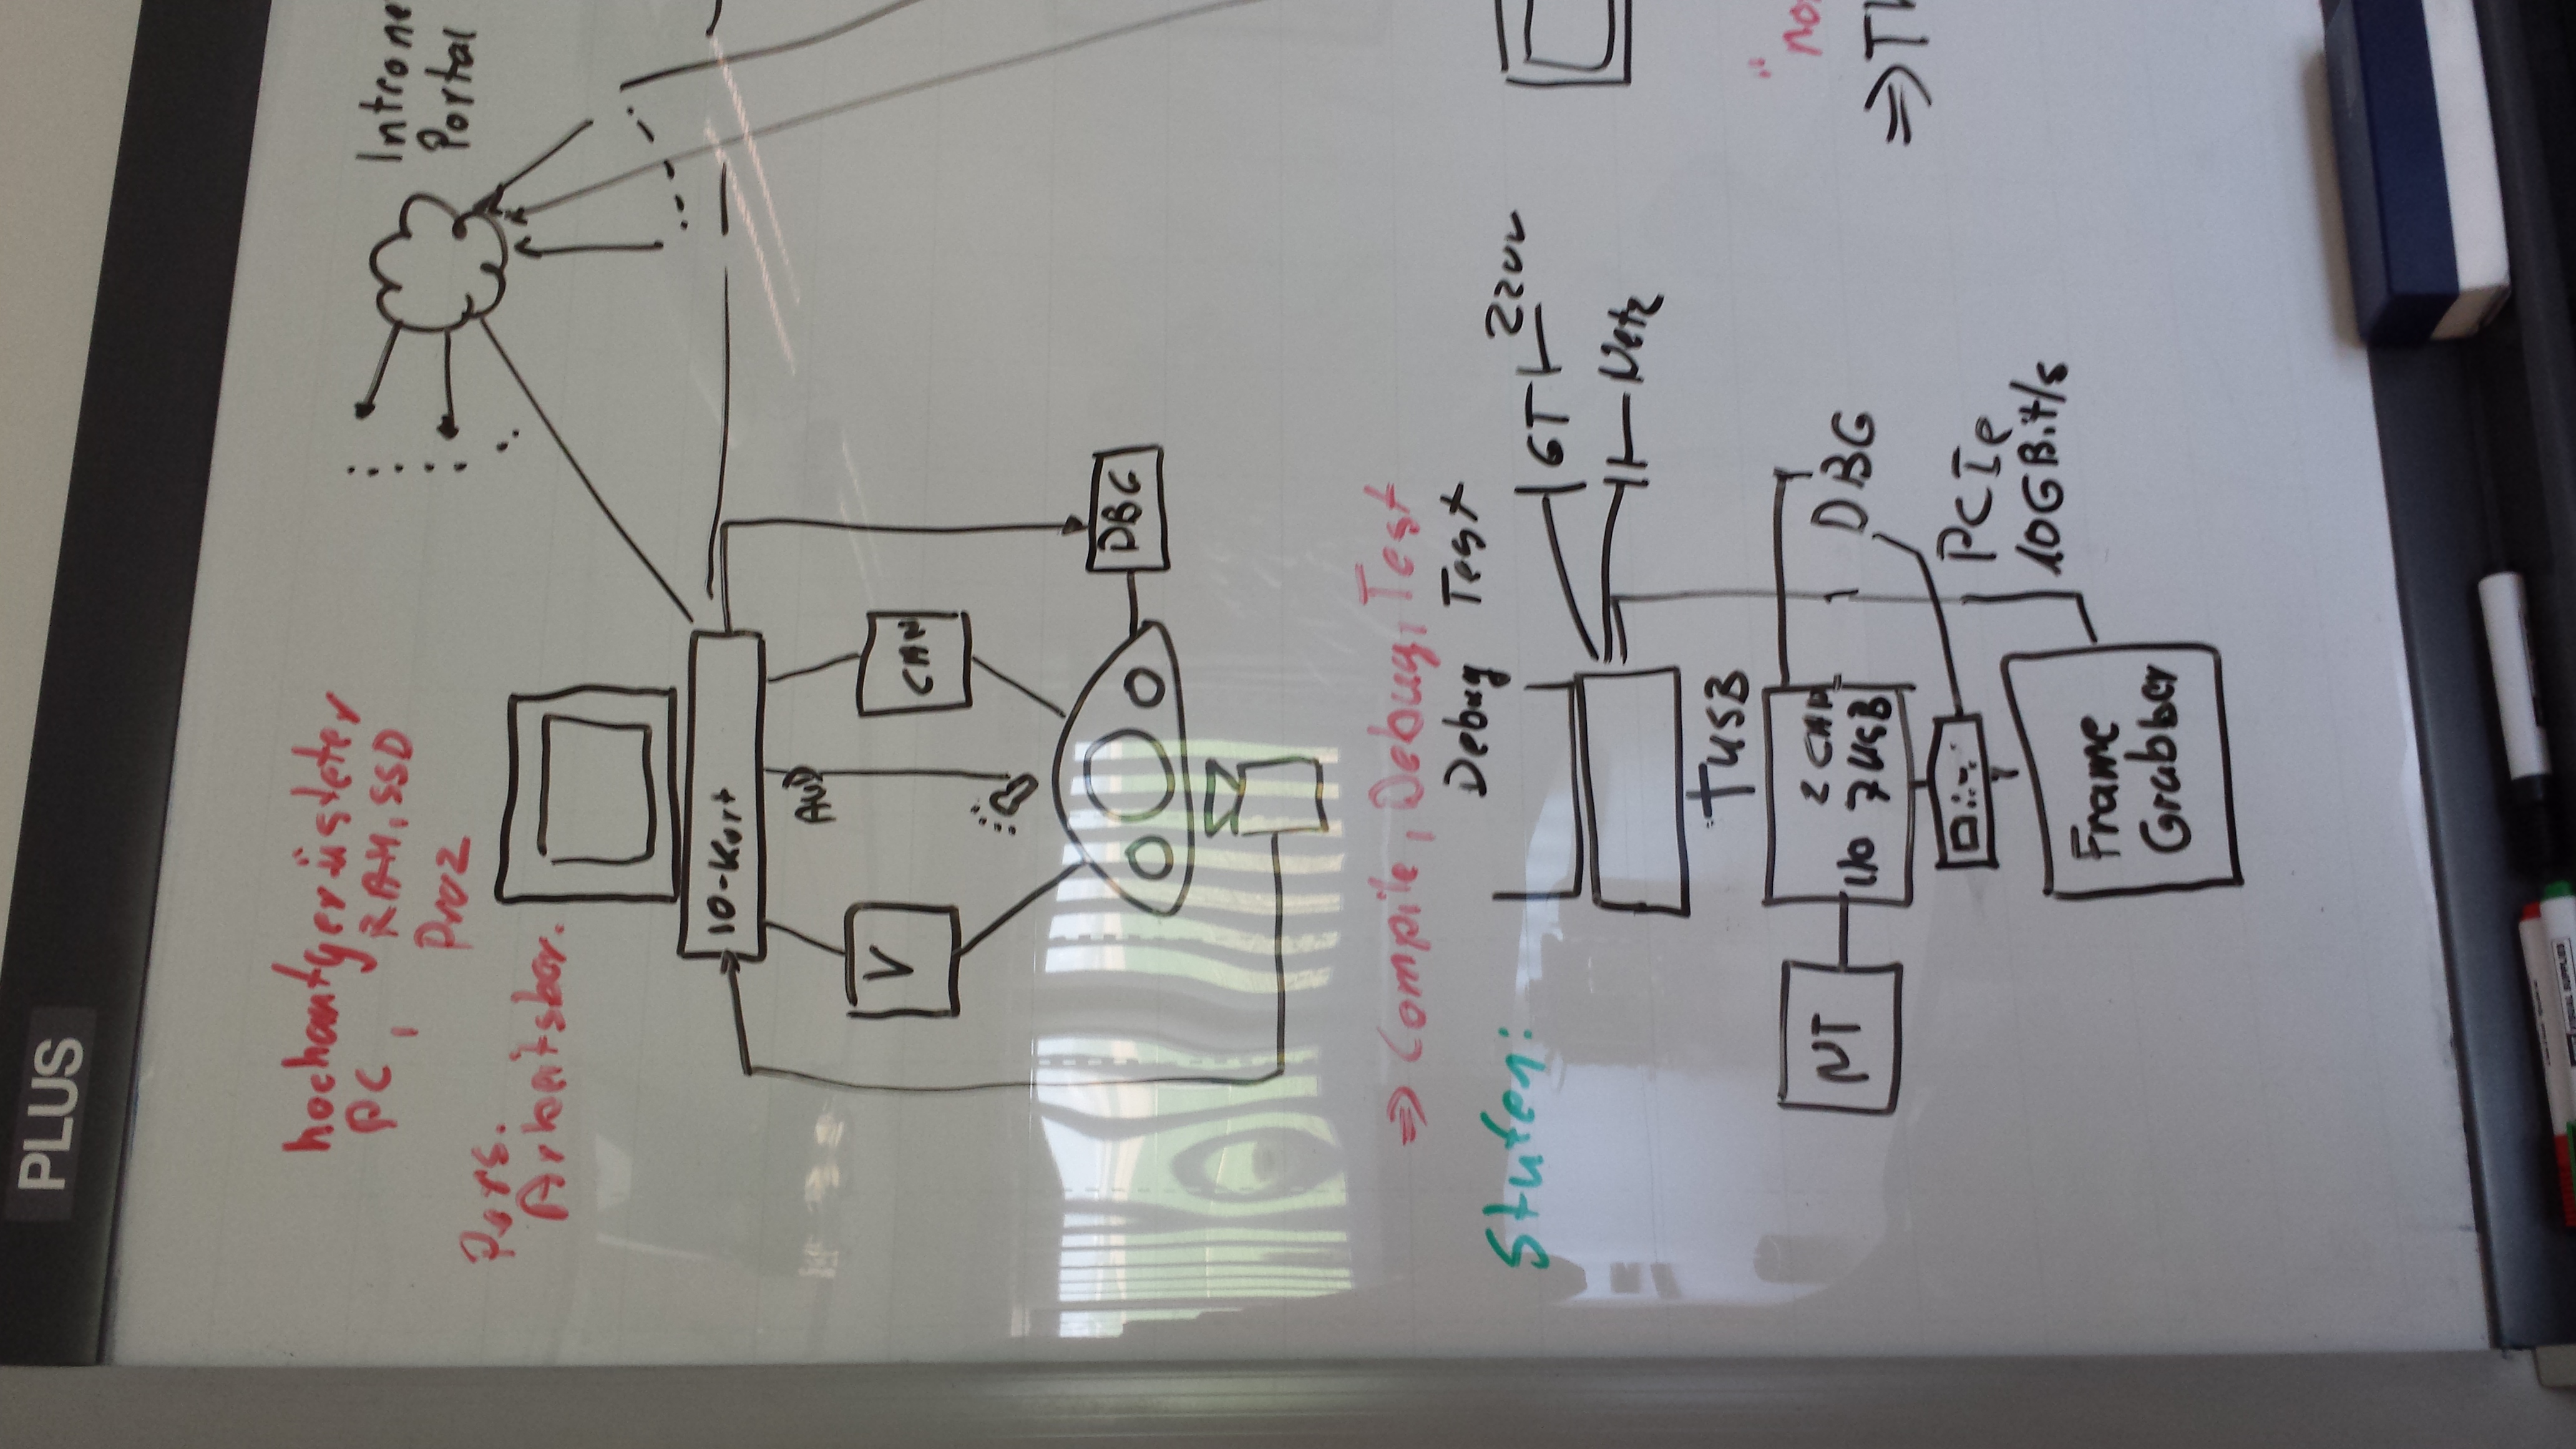 PLUS
hochaufgerüsteter
PC, RAM, SSD
Proz
Pers.
Arbeitsber.
Intrane
Portal
IO-Kart
AUD
V
CAN
DBG
=> Compile, Debug, Test
Debug Test
Stufen:
220V
Netz
USB
NT
2 CAN
I/O 7 USB
DBG
PCIe
10GBit/s
Frame
Grabber
"no
=> TH